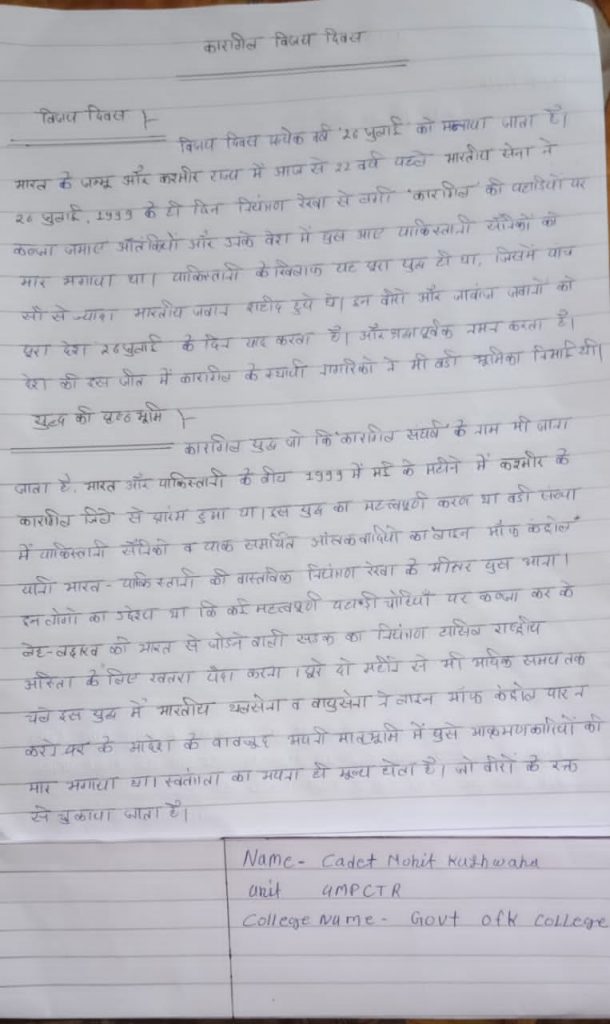 कारगिल विजय दिवस
विजय दिवस :-
विजय दिवस प्रत्येक वर्ष '26 जुलाई' को मनाया जाता है।
भारत के जम्मू और कश्मीर राज्य में आज से 22 वर्ष पहले भारतीय सेना ने
26 जुलाई, 1999 के ही दिन नियंत्रण रेखा से लगी 'कारगिल' की पहाडियों पर
कब्जा जमाए आतंकियों और उनके वेश में घुस आए पाकिस्तानी सैनिकों को
मार भगाया था। पाकिस्तानी के खिलाफ यह पूरा युद्ध ही था, जिसमें पांच
सौ से ज्यादा भारतीय जवान शहीद हुये थे। इन वीरो और जाबांज जवानों को
पूरा देश '26 जुलाई' के दिन याद करता है। और श्रद्धापूर्वक नमन करता है।
देश की इस जीत में कारगिल के स्थायी नागरिकों ने भी बडी भूमिका निभाई थी।
युद्ध की पृष्ठभूमि :-
कारगिल युद्ध जो कि 'कारगिल संघर्ष' के नाम भी जाना
जाता है, भारत और पाकिस्तानी के बीच 1999 में मई के महीने में कश्मीर के
कारगिल जिले से प्रारंभ हुआ था। इस युद्ध का महत्वपूर्ण कारण था बडी संख्या
में पाकिस्तानी सैनिकों व पाक समर्थित आंतकवादियों का लाइन ऑफ कंट्रोल"
यानी भारत-पाकिस्तानी की वास्तविक नियंत्रण रेखा के भीतर घुस आना।
इन लोगो का उद्देश्य था कि कई महत्वपूर्ण पहाडी चोटियों पर कब्जा कर के
लेह-लद्दाख को भारत से जोडने वाली सडक का नियंत्रण हासिल राष्ट्रीय
अस्मिता के लिए खतरा पैदा करना। पूरे दो महीने से भी अधिक समय तक
चले इस युद्ध में भारतीय थलसेना व वायुसेना ने लाइन ऑफ कंट्रोल पार न
करने के आदेश के बावजूद अपनी मातृभूमि में घुसे आक्रमणकारियों को
मार भगाया था। स्वतंत्रता का अपना ही मूल्य होता है। जो वीरों के रक्त
से चुकाया जाता है।
Name- Cadet Mohit Kushwaha
unit 4MPCTR
College Name- Govt ofk College